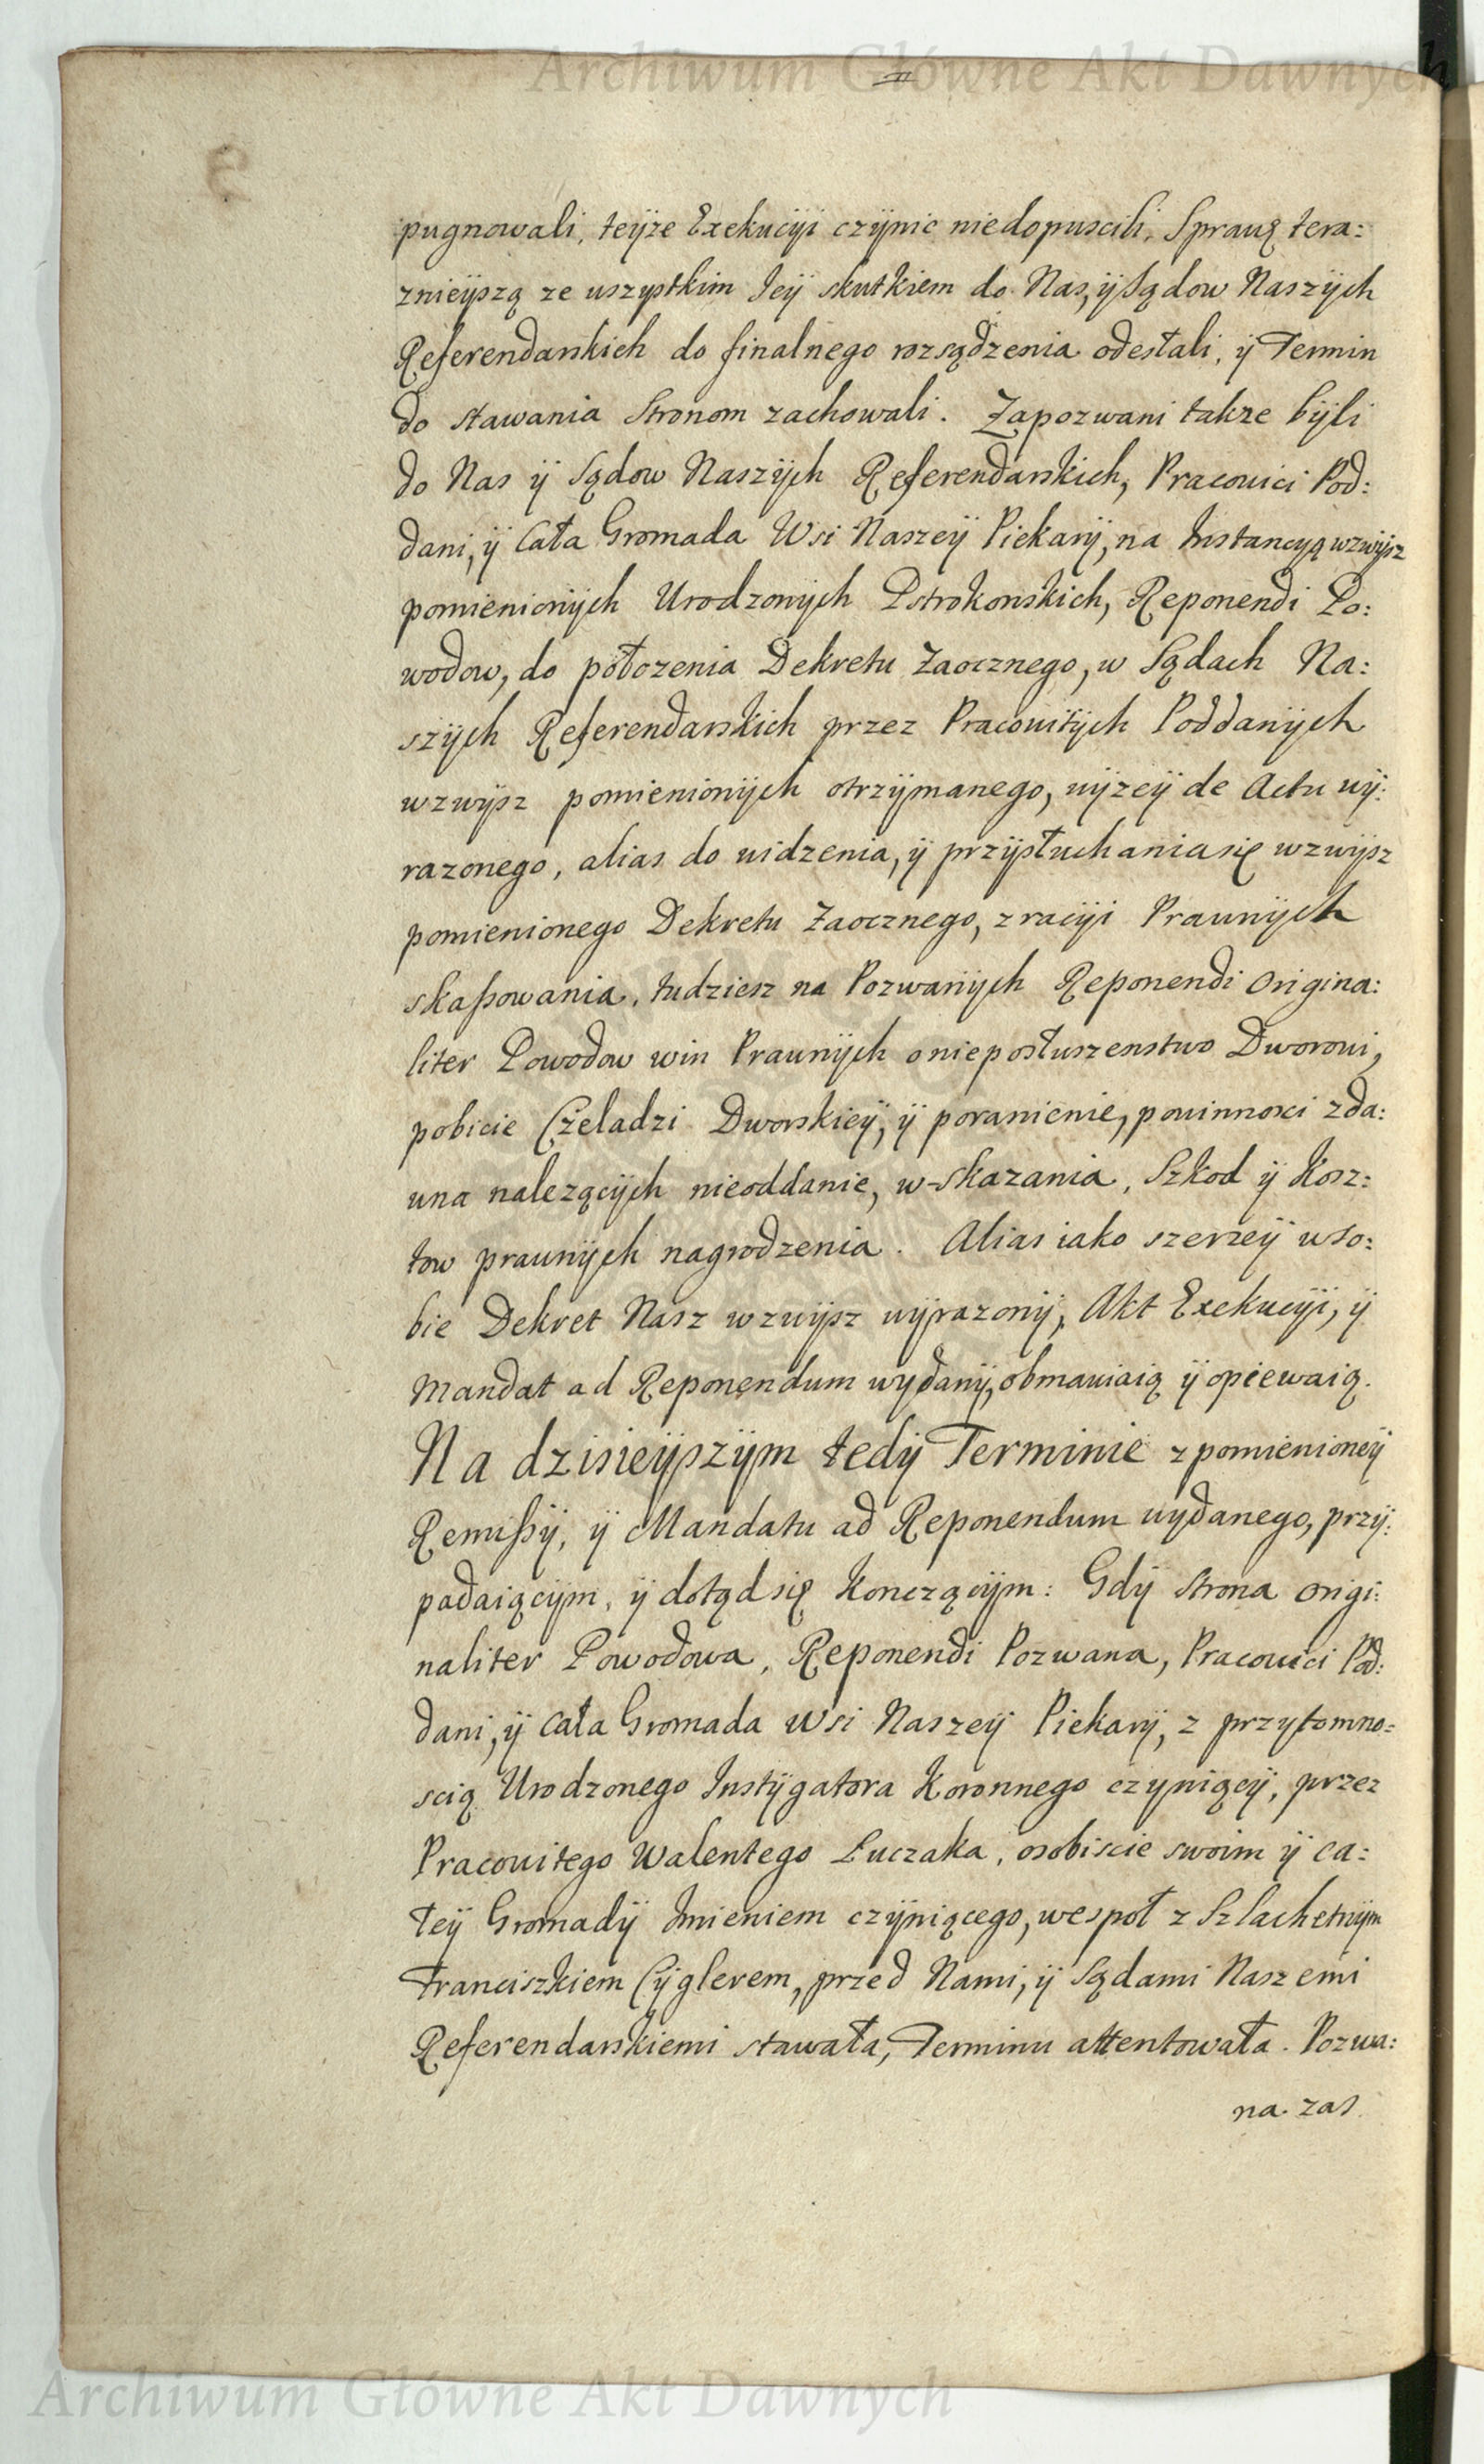 Archiwum Główne Akt Dawnych
pugnowali, teÿże Exekucÿi czÿnic niedopuscili, Sprawę tera:
znieÿszą ze wszystkim Jeÿ skutkiem do Nas, ÿ Sądow Naszÿch
Referendarskich do finalnego rozsądzenia odesłali, ÿ Termin
do stawania Stronom zachowali. Zapozwani także bÿli
do Nas ÿ Sądow Naszÿch Referendarskich, Pracowici Pod:
dani, ÿ Cała Gromada Wsi Naszeÿ Piekarÿ, na Instancyą wzwÿsz
pomienionÿch Urodzonÿch Pstrokonskich, Reponendi Po:
wodow, do położenia Dekretu Zaocznego, w Sądach Na:
szÿch Referendarskich przez Pracowitÿch Poddanÿch
wzwÿsz pomienionÿch otrzÿmanego, wÿzeÿ de Actu wÿ:
razonego, alias do widzenia, ÿ przÿsłuchania się wzwÿsz
pomienionego Dekretu Zaocznego, z racÿi Prawnÿch
skassowania, tudziesz na Pozwanÿch Reponendi Origina:
liter Powodow win Prawnÿch o nieposłuszenstwo Dworowi,
pobicie Czeladzi Dworskieÿ, ÿ poranienie, powinnosci zda:
wna nalezącÿch nieoddanie, w-skazania, Szkod ÿ Kosz:
tow prawnÿch nagrodzenia. Alias iako szerzeÿ w so:
bie Dekret Nasz wzwÿsz wÿrazonÿ, Akt Exekucÿi, ÿ
Mandat ad Reponendum wydanÿ, obmawiaią ÿ opiewaią.
Na dzisieÿszÿm tedÿ Terminie z pomienioneÿ
Remissÿ, ÿ Mandatu ad Reponendum wydanego, przÿ:
padaiącÿm, ÿ dotąd się konczącÿm: Gdÿ Strona origi:
naliter Powodowa, Reponendi Pozwana, Pracowici Pod:
dani, ÿ Cała Gromada Wsi Naszeÿ Piekarÿ, z przytomno=
scią Urodzonego Instÿgatora Koronnego czyniąceÿ, przez
Pracowitego Walentego Łuczaka, osobiscie swoim ÿ ca:
łeÿ Gromadÿ Imieniem czÿniącego, wespoł z Szlachetnÿm
Franciszkiem Cÿglerem, przed Nami, ÿ Sądami Naszemi
Referendarskiemi stawała, Terminu attentowała. Pozwa:
na zas
Archiwum Główne Akt Dawnych